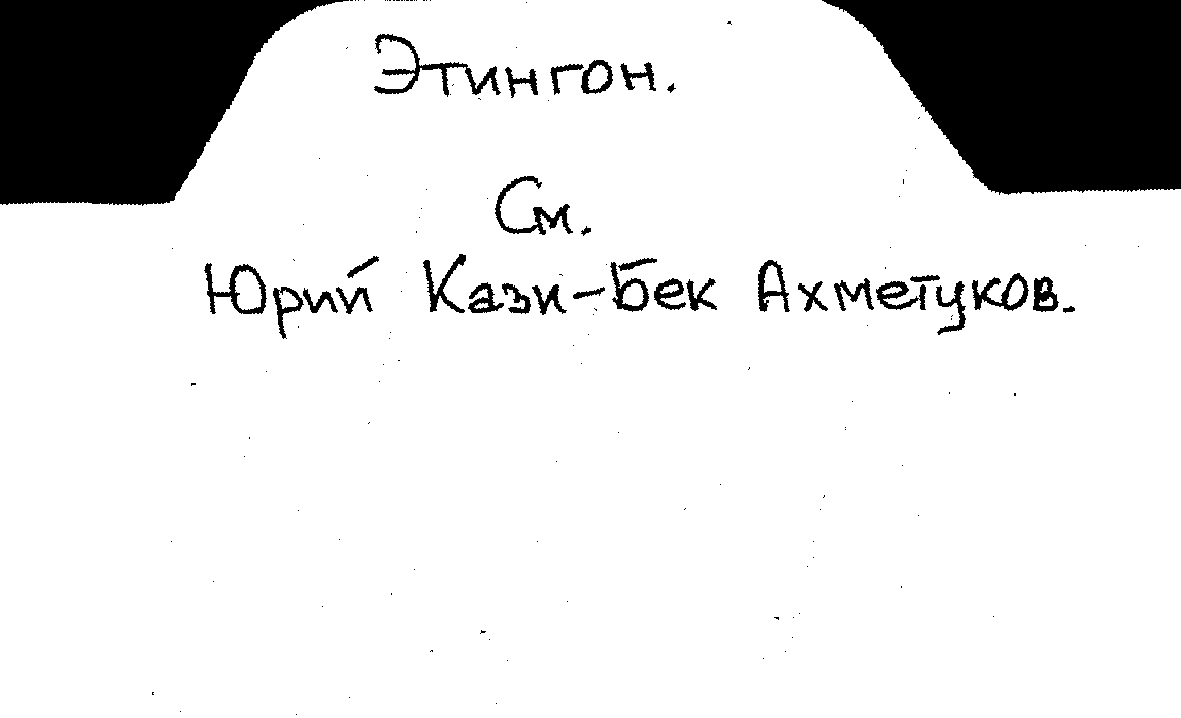 Этингон.
См.
Юрий Кази-Бек Ахметуков.